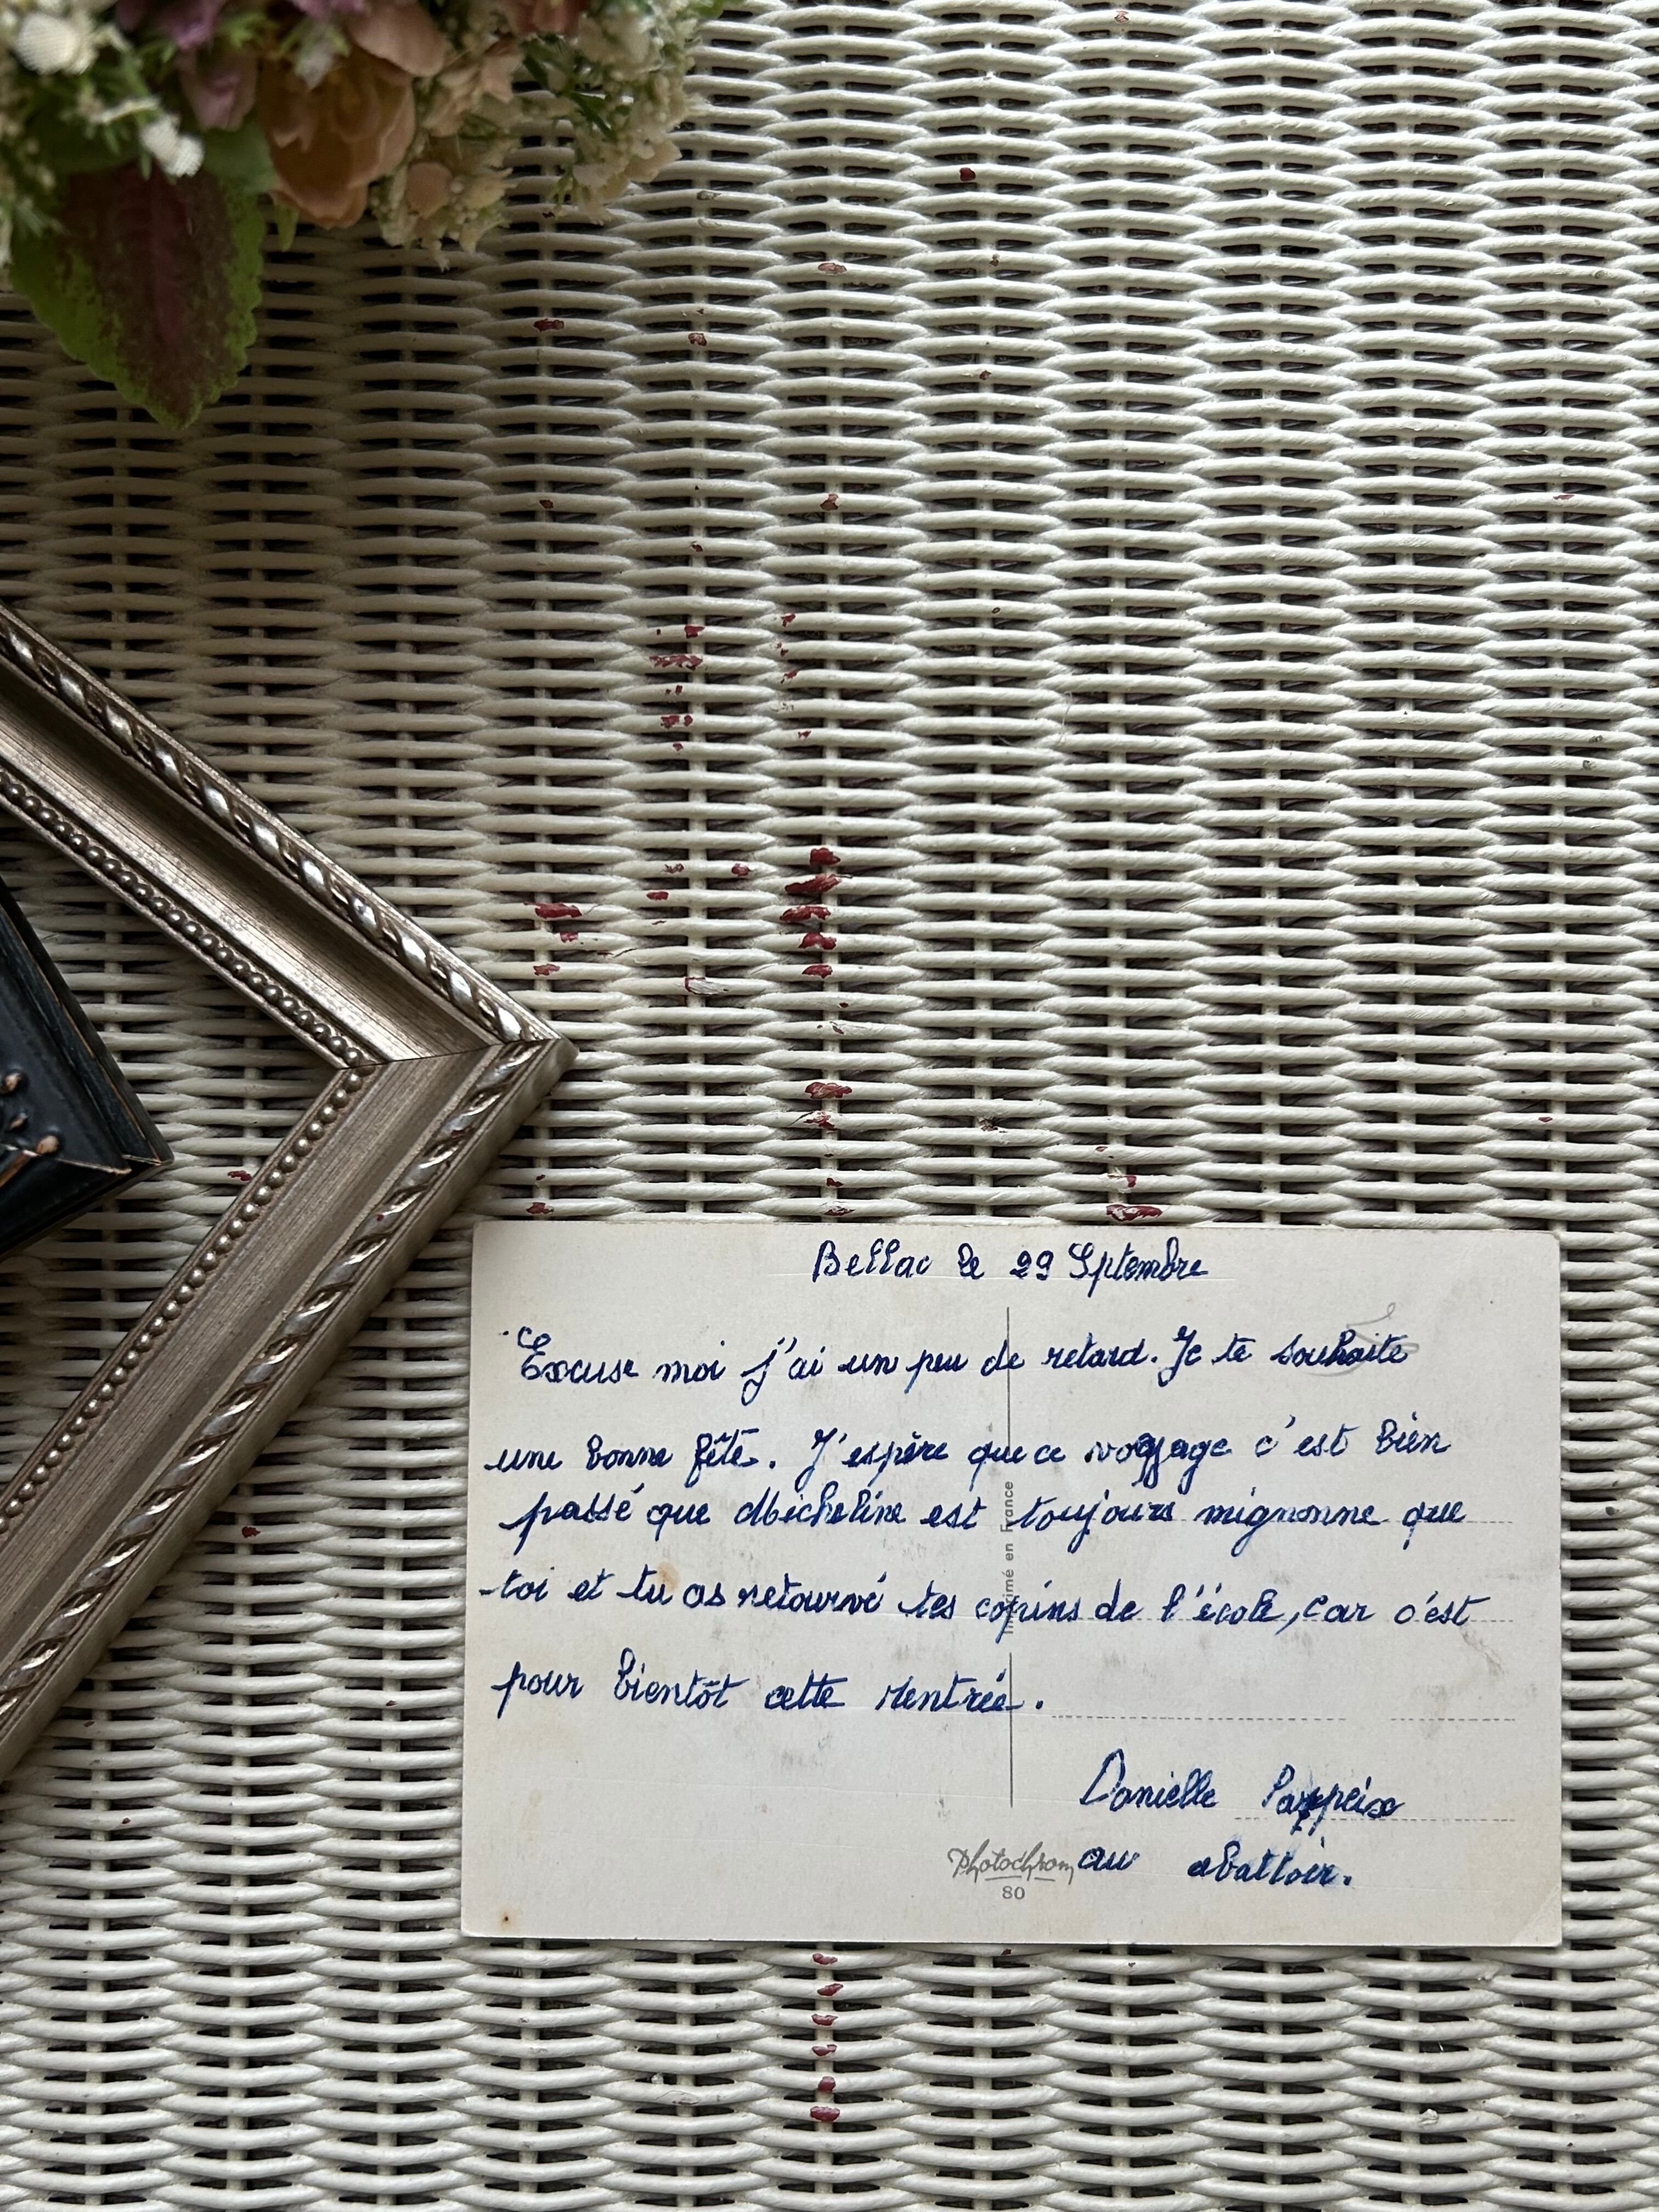 Bellac le 29 Septembre
Excuse moi j'ai un peu de retard. Je te souhaite
une bonne fête. J'espère que ce voyage c'est bien
passé que Micheline est toujours mignonne que
toi et tu as retourvé tes copins de l'école, car c'est
pour bientôt cette rentrée.
Danielle
au abattoir.
Imprimé en France
Photochrom
80